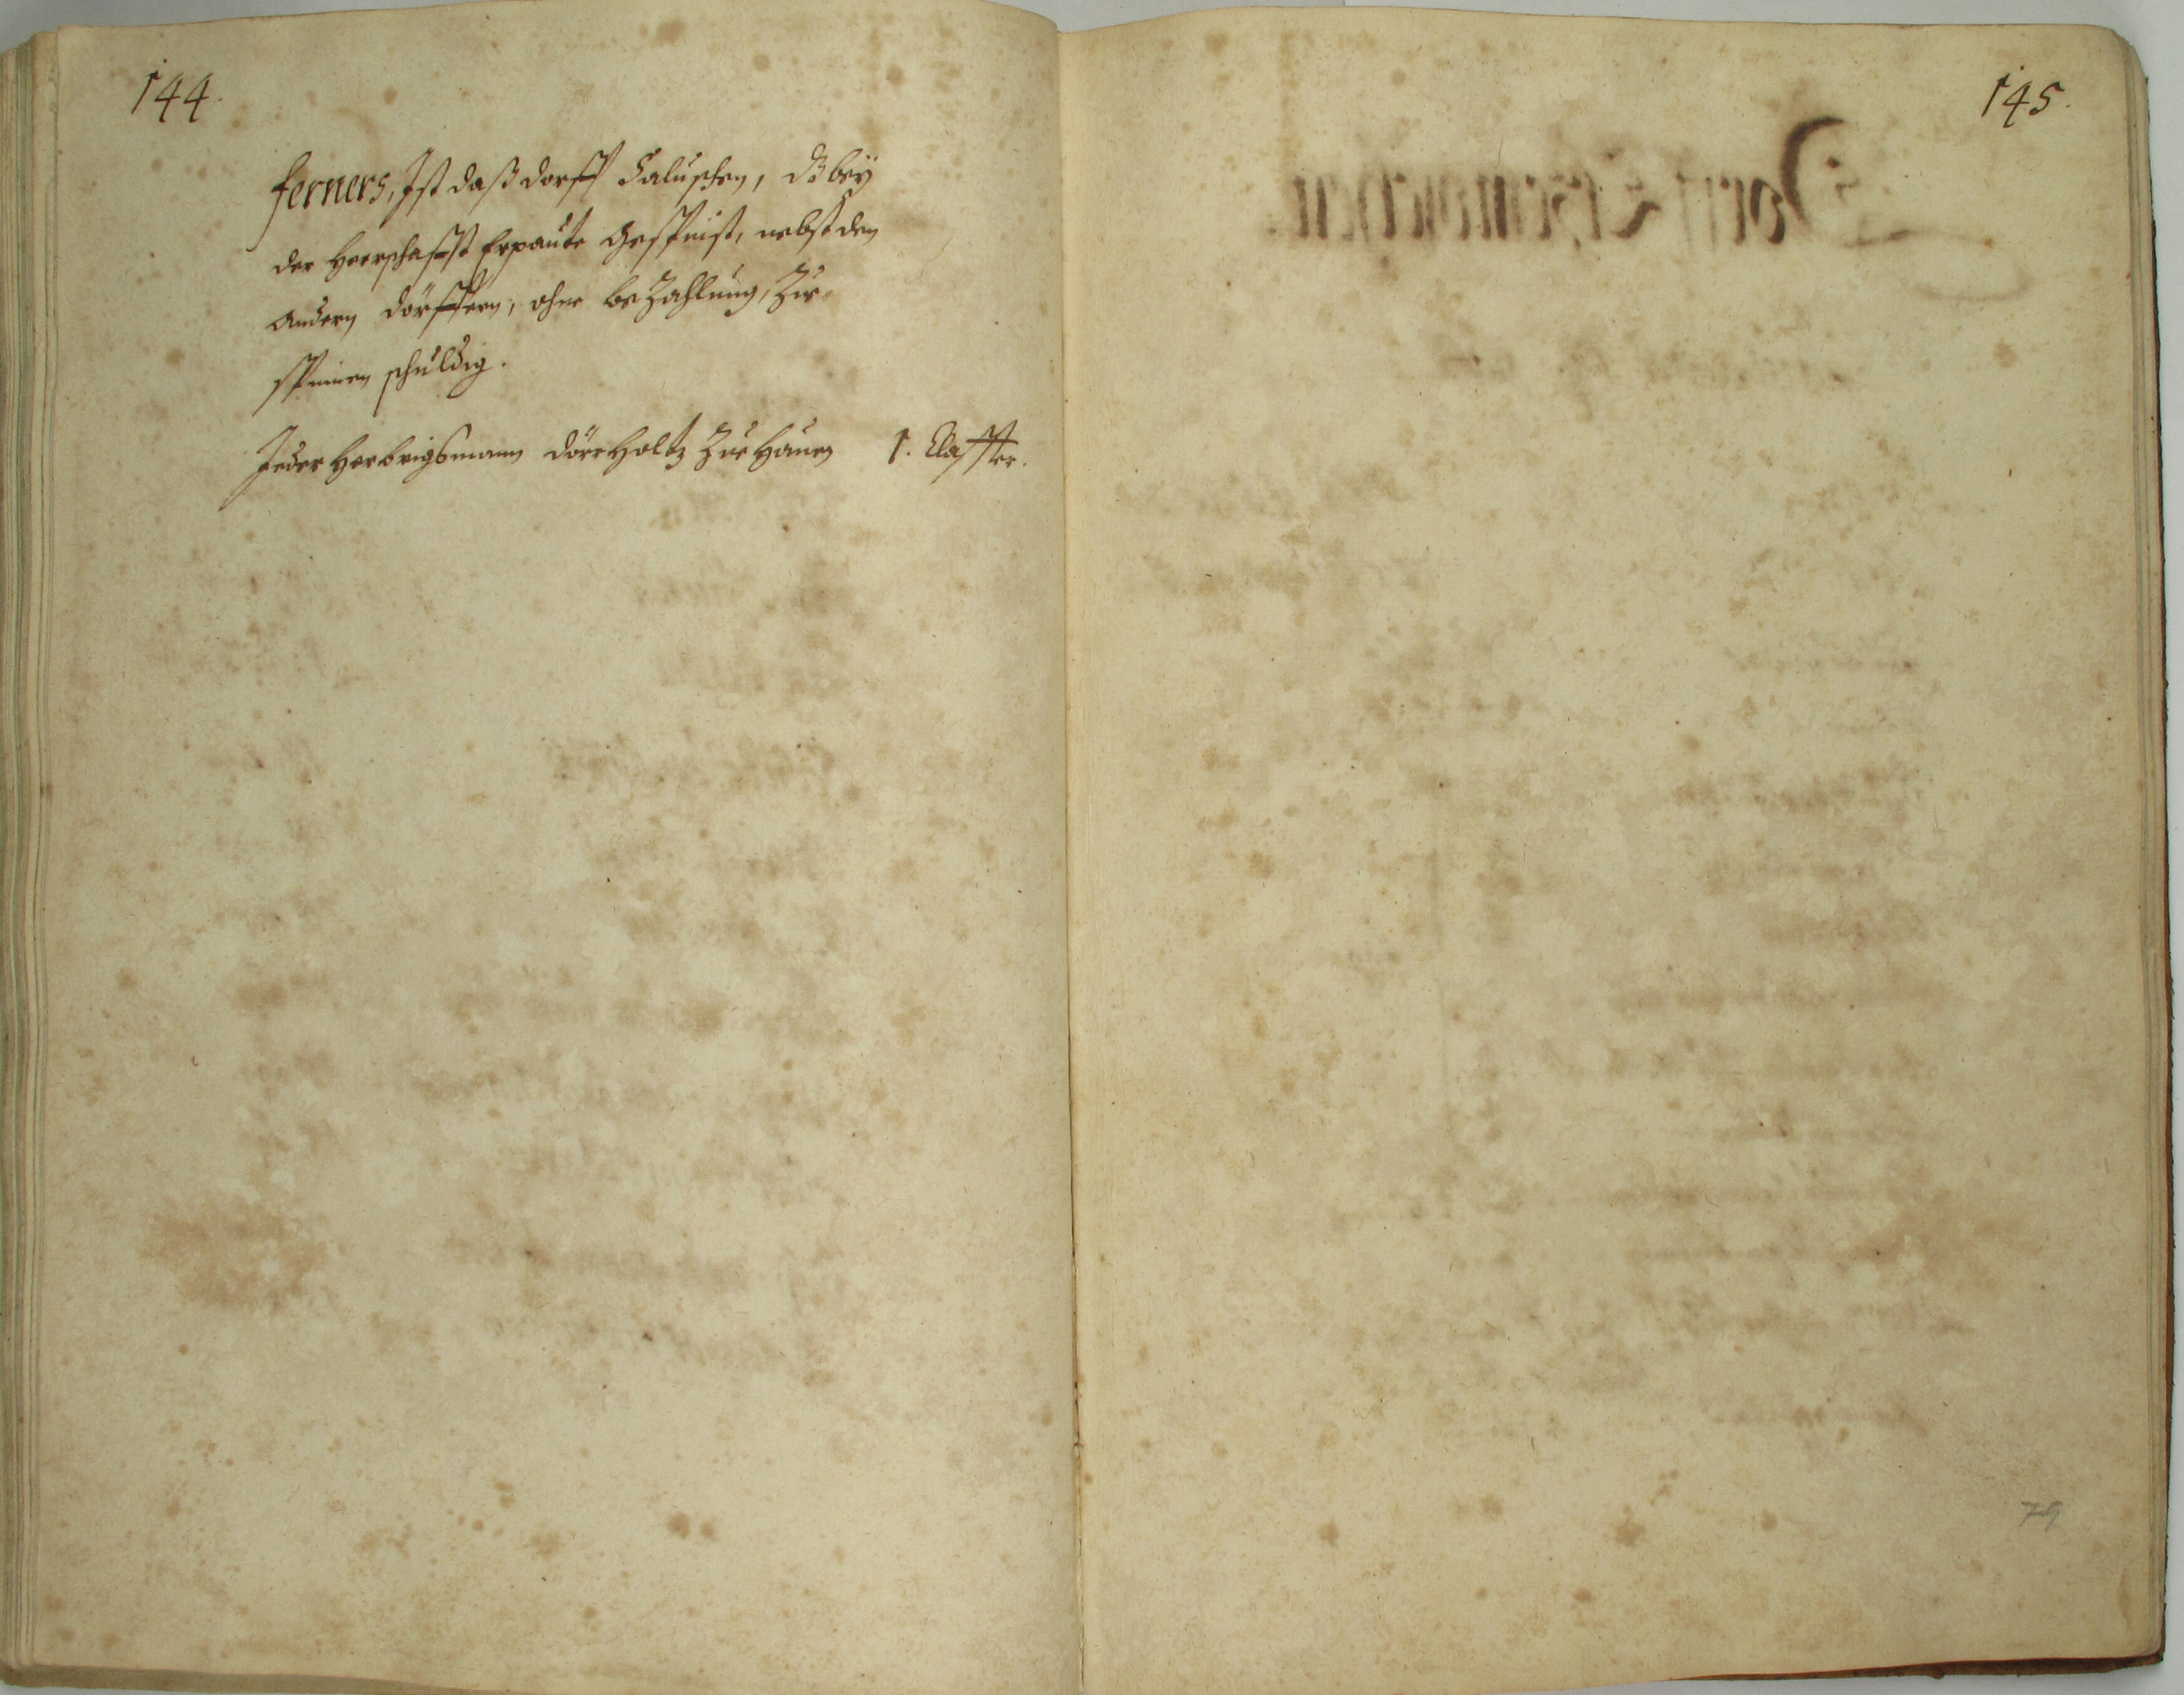 144.
ferners, Ist daß dorff Caluschen, dz bey
der Herrschafft Erpaute Gespinst, nebst den
andern dörffern, ohne beZahlung, Zue
spinnen schuldig.
Jeder Herbrigsmann dörrHoltz Zue Hauen 1. Claffter.
145.